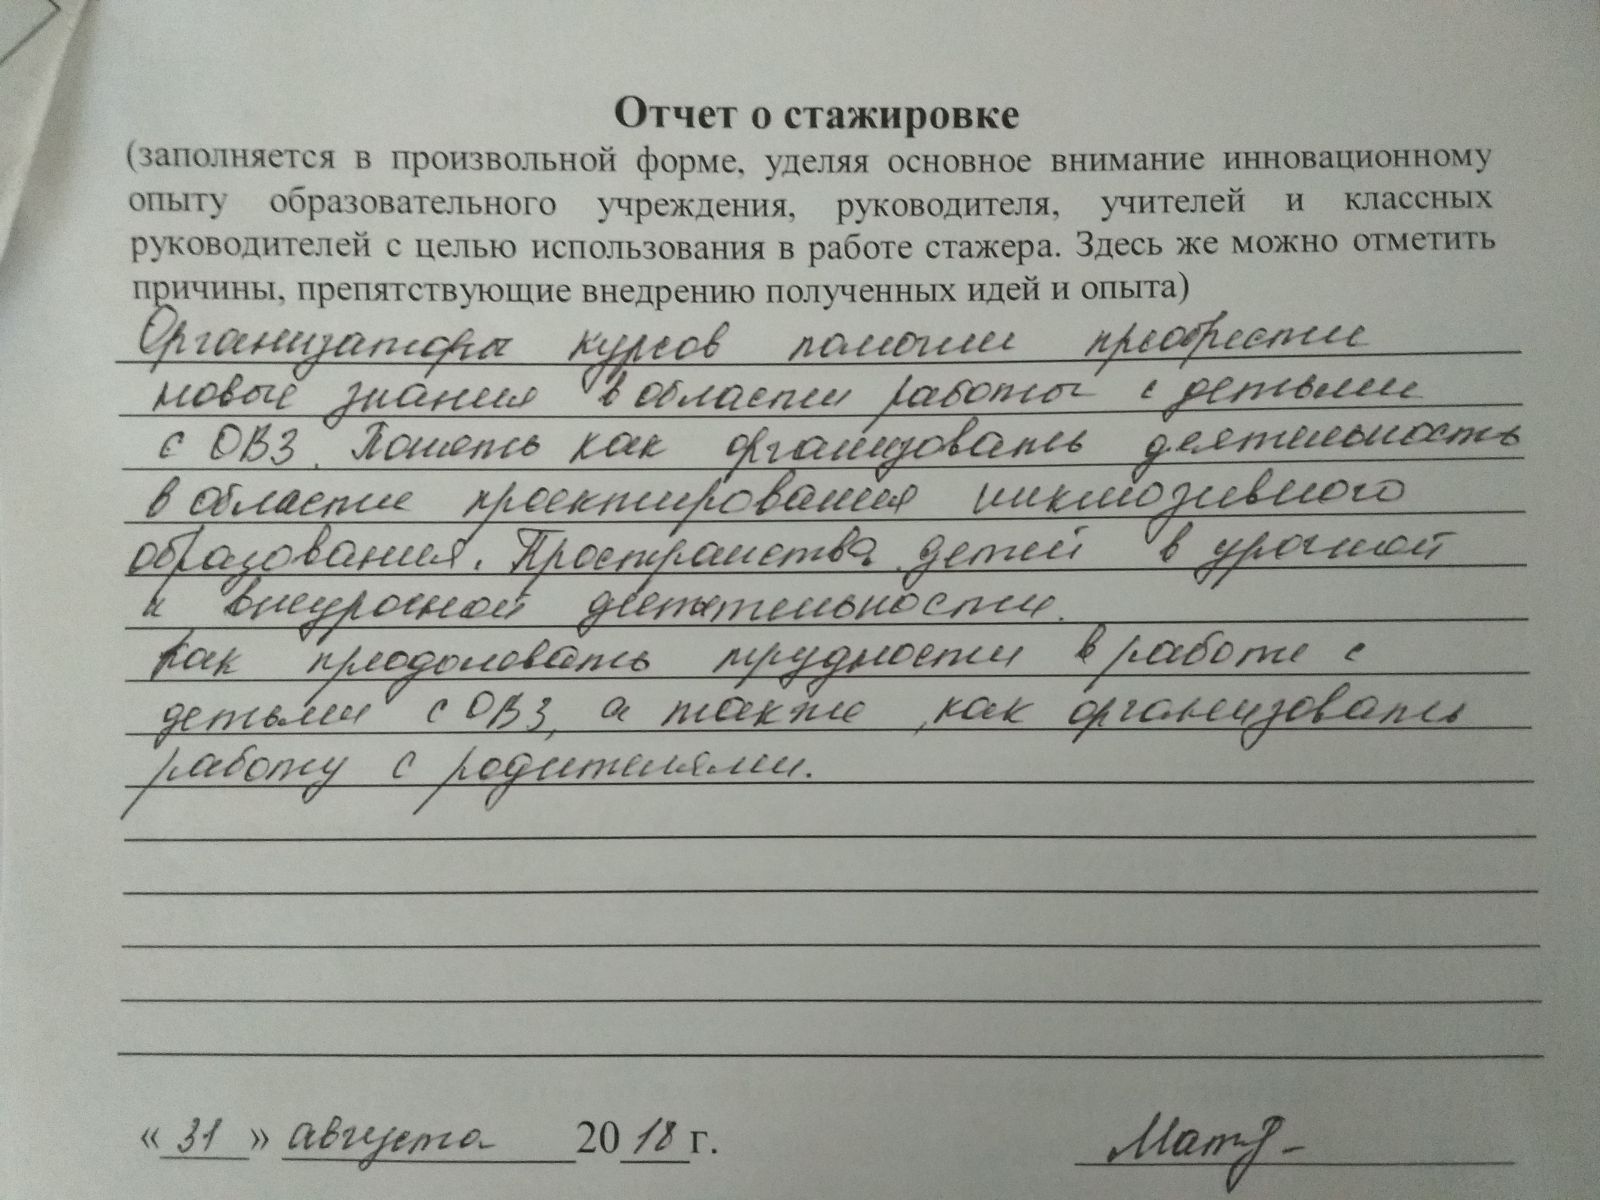 Отчет о стажировке
(заполняется в произвольной форме, уделяя основное внимание инновационному
опыту образовательного учреждения, руководителя, учителей и классных
руководителей с целью использования в работе стажера. Здесь же можно отметить
причины, препятствующие внедрению полученных идей и опыта)
Организаторы курсов помогли преобрести
новые знания в области работы с детьми
с ОВЗ. Понять как организовать деятельность
в области проектирования инклюзивного
образования. Пространства детей в урочной
и внеурочной деятельности.
Как преодоловать трудности в работе с
детьми с ОВЗ, а также, как организовать
работу с родителями.
« 31 » августа 2018 г.